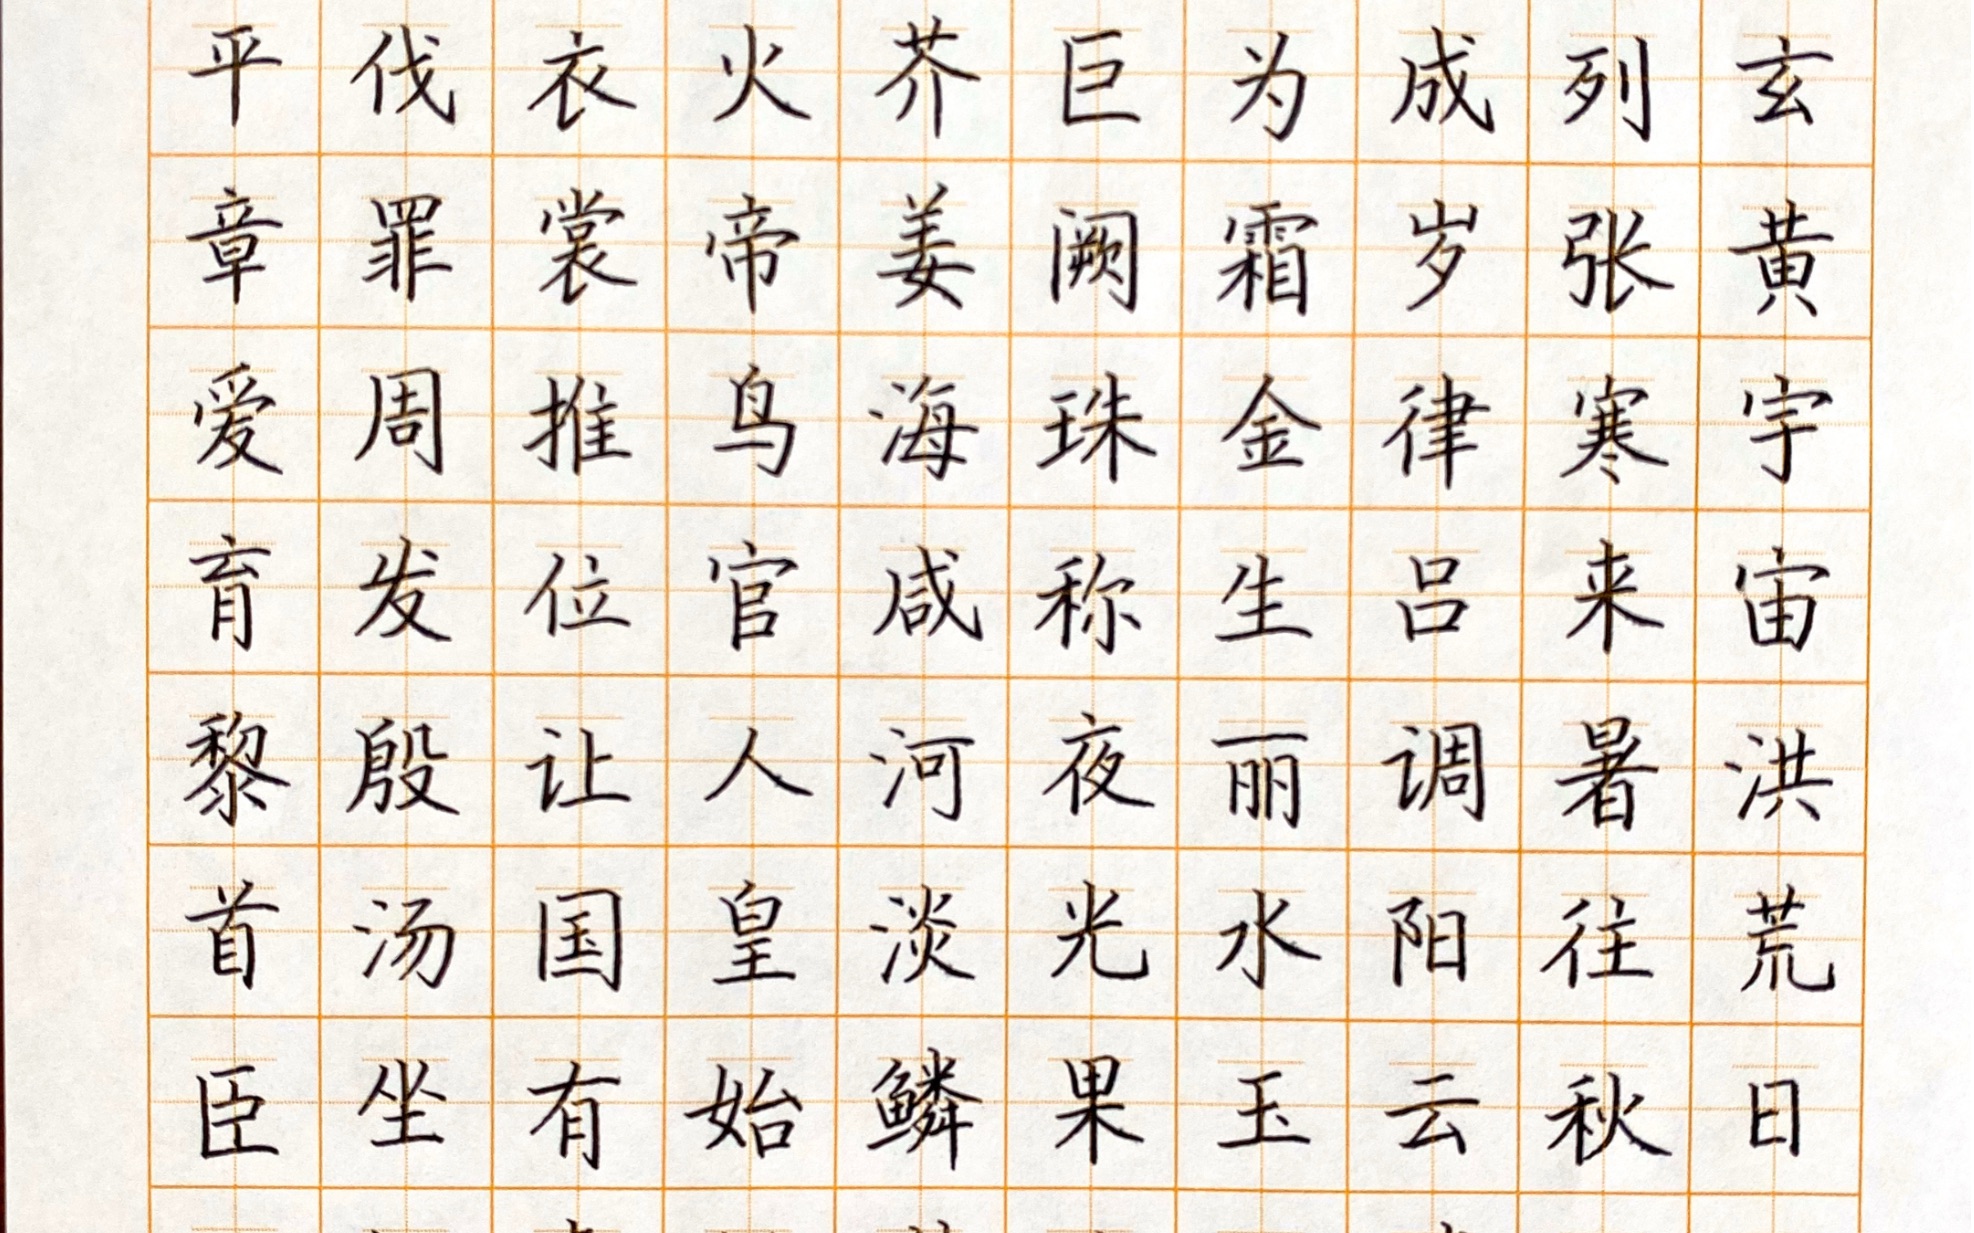 玄黄宇宙洪荒日
列张寒来暑往秋
成岁律吕调阳云
为霜金生丽水玉
巨阙珠称夜光果
芥姜海咸河淡鳞
火帝鸟官人皇始
衣裳推位让国有
伐罪周发殷汤坐
平章爱育黎首臣